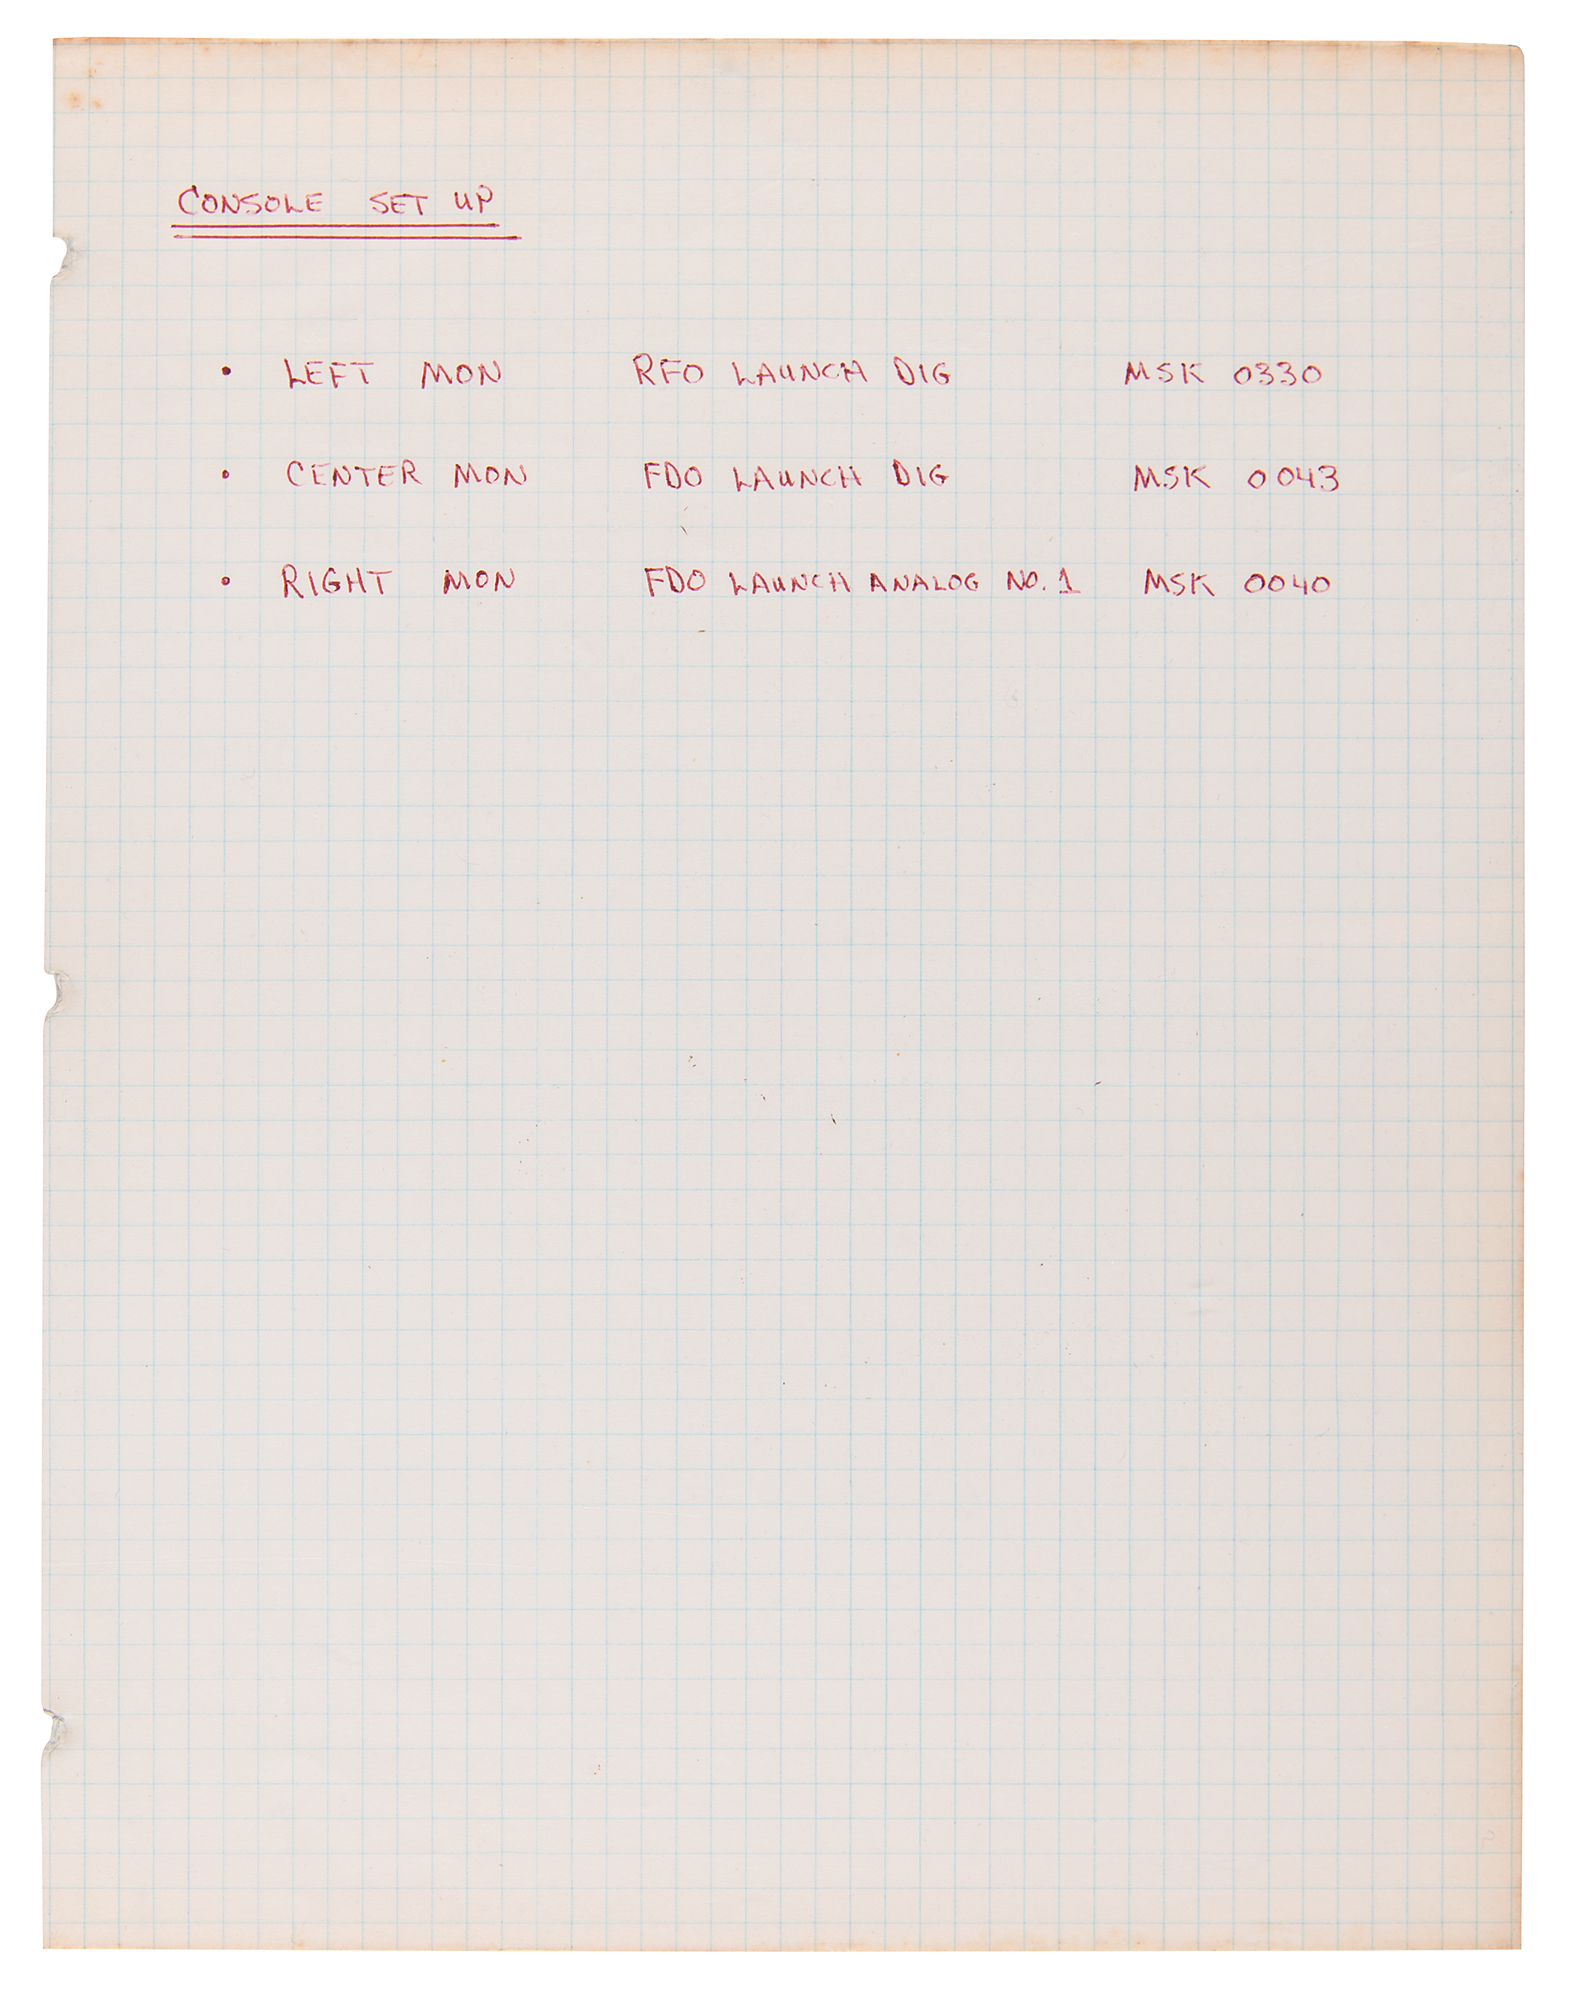 CONSOLE SET UP
• LEFT MON RFO LAUNCH DIG MSK 0330
• CENTER MON FDO LAUNCH DIG MSK 0043
• RIGHT MON FDO LAUNCH ANALOG NO. 1 MSK 0040